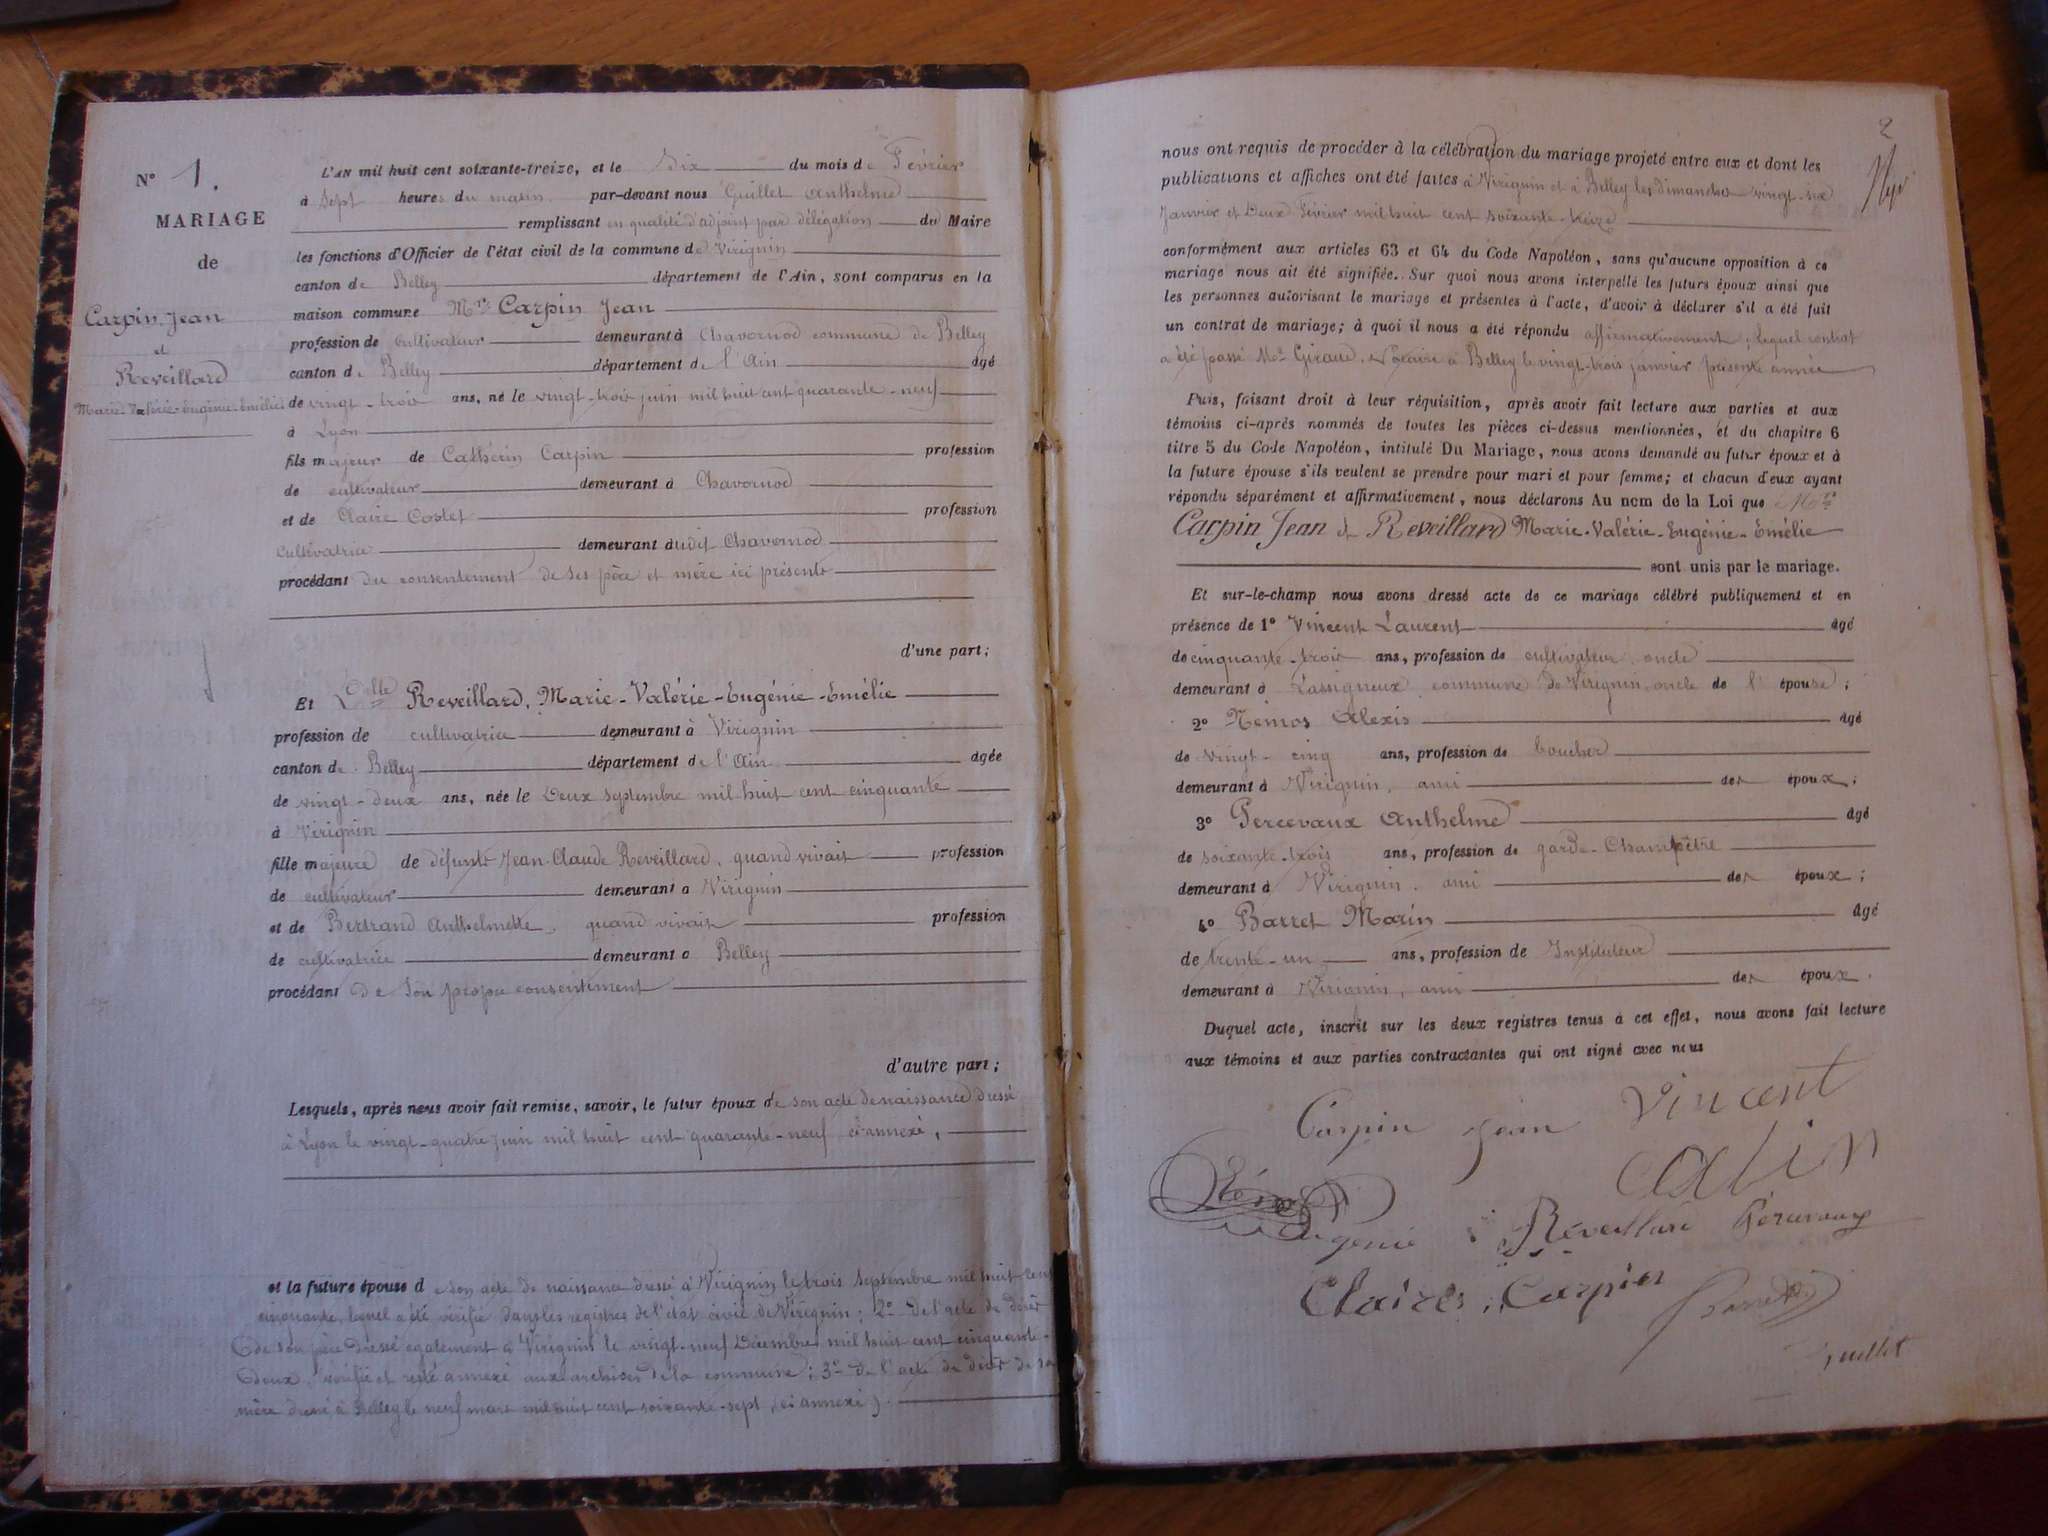 N° 1.
MARIAGE
de
Carpin Jean
et
Reveillard
Marie-Valérie-Eugénie-Emélie
L'AN mil huit cent soixante-treize, et le Six du mois de Février
à Sept heures du matin par-devant nous Guillet Anthelme
remplissant en qualité d'adjoint par délégation du Maire
les fonctions d'Officier de l'état civil de la commune de Virignin
canton de Belley département de l'Ain, sont comparus en la
maison commune Mr. Carpin Jean
profession de cultivateur demeurant à Chavornod commune de Belley
canton de Belley département de l'Ain âgé
de vingt-trois ans, né le vingt-trois juin mil huit cent quarante-neuf
à Lyon
fils majeur de Catherin Carpin profession
de cultivateur demeurant à Chavornod
et de Claire Costet profession
cultivatrice demeurant audit Chavornod
procédant du consentement de ses père et mère ici présents
d'une part;
Et Delle Reveillard, Marie-Valérie-Eugénie-Emélie
profession de cultivatrice demeurant à Virignin
canton de Belley département de l'Ain âgée
de vingt-deux ans, née le Deux Septembre mil huit cent cinquante
à Virignin
fille majeure de défunts Jean-Claude Reveillard, quand vivait profession
de cultivateur demeurant à Virignin
et de Bertrand Anthelmette, quand vivait profession
de cultivatrice demeurant à Belley
procédant de son propre consentement
d'autre part;
Lesquels, après nous avoir fait remise, savoir, le futur époux de son acte de naissance dressé
à Lyon le vingt-quatre juin mil huit cent quarante-neuf ci-annexé,
et la future épouse de son acte de naissance dressé à Virignin le trois Septembre mil huit cent
cinquante, lequel a été vérifié dans les registres de l'état civil de Virignin; 2° De l'acte de décès
de son père dressé également à Virignin le vingt-neuf Décembre mil huit cent cinquante-
deux, vérifié et resté annexé aux archives de la commune; 3° de l'acte de décès de sa
mère dressé à Belley le neuf mars mil huit cent soixante-sept, (ci annexé).
2
nous ont requis de procéder à la célébration du mariage projeté entre eux et dont les
publications et affiches ont été faites à Virignin et à Belley les Dimanches vingt-six
Janvier et Deux Février mil huit cent soixante-treize
conformément aux articles 63 et 64 du Code Napoléon, sans qu'aucune opposition à ce
mariage nous ait été signifiée. Sur quoi nous avons interpellé les futurs époux ainsi que
les personnes autorisant le mariage et présentes à l'acte, d'avoir à déclarer s'il a été fait
un contrat de mariage; à quoi il nous a été répondu affirmativement, lequel contrat
a été passé Me Giraud, Notaire à Belley le vingt-trois janvier présente année
Puis, faisant droit à leur réquisition, après avoir fait lecture aux parties et aux
témoins ci-après nommés de toutes les pièces ci-dessus mentionnées, et du chapitre 6
titre 5 du Code Napoléon, intitulé Du Mariage, nous avons demandé au futur époux et à
la future épouse s'ils veulent se prendre pour mari et pour femme; et chacun d'eux ayant
répondu séparément et affirmativement, nous déclarons Au nom de la Loi que Mr.
Carpin Jean & Reveillard Marie-Valérie-Eugénie-Emélie
sont unis par le mariage.
Et sur-le-champ nous avons dressé acte de ce mariage célébré publiquement et en
présence de 1° Vincent Laurent âgé
de cinquante-trois ans, profession de cultivateur, oncle
demeurant à Lassigneux commune de Virignin, oncle de l'épouse;
2° Némos Alexis âgé
de vingt-cinq ans, profession de boucher
demeurant à Virignin, ami des époux;
3° Percevaux Anthelme âgé
de soixante-trois ans, profession de garde-Champêtre
demeurant à Virignin, ami des époux;
4° Barret Marin âgé
de trente-un ans, profession de Instituteur
demeurant à Virignin, ami des époux.
Duquel acte, inscrit sur les deux registres tenus à cet effet, nous avons fait lecture
aux témoins et aux parties contractantes qui ont signé avec nous
Carpin Jean Vincent
Eugénie Réveillard
Claire Carpin
Guillet